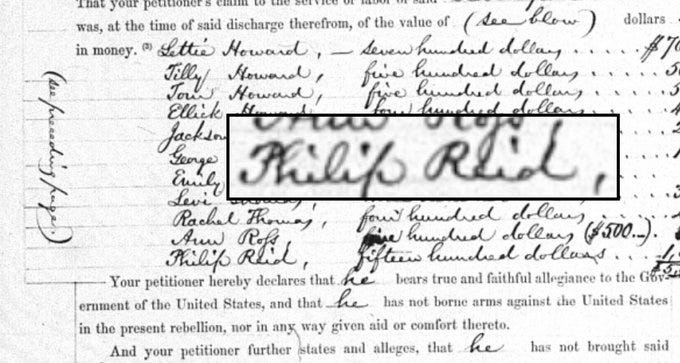 That your petitioner's claim to the service or labor of said
was, at the time of said discharge therefrom, of the value of (see blow) dollars
in money. (3) Lettie Howard, — seven hundred dollars ..... $70
Tilly Howard, five hundred dollars ..... 5
Tom Howard, five hundred dollars ..... 5
Ellick Howard, four hundred dollars ..... 4
Jackson
George
Emily
Levi Thomas,
Rachel Thomas, four hundred dollars
Ann Ross, five hundred dollars ($500..).
Philip Reid, fifteen hundred dollars ...
(see preceding page.)
Ann Ross,
Philip Reid,
Your petitioner hereby declares that he bears true and faithful allegiance to the Gov-
ernment of the United States, and that he has not borne arms against the United States
in the present rebellion, nor in any way given aid or comfort thereto.
And your petitioner further states and alleges, that he has not brought said